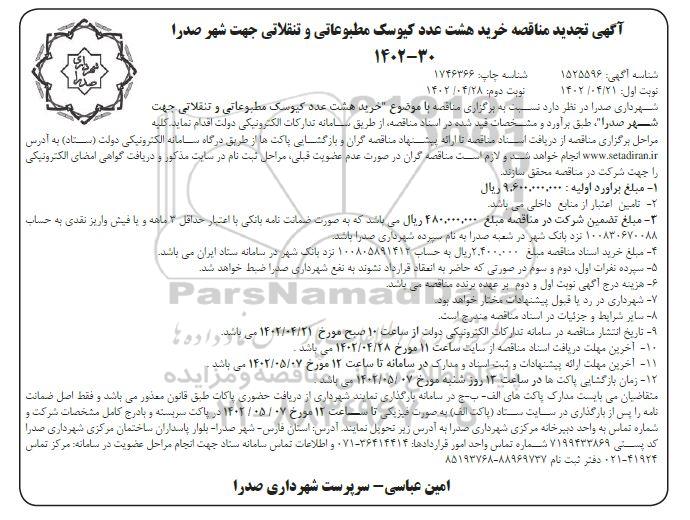 آگهی تجدید مناقصه خرید هشت عدد کیوسک مطبوعاتی و تنقلاتی جهت شهر صدرا
۱۴۰۲-۳۰
شهرداری صدرا
شناسه آگهی: ۱۵۲۵۵۹۶ شناسه چاپ: ۱۷۴۶۳۶۶
نوبت اول: ۱۴۰۲/۰۴/۲۱ نوبت دوم: ۱۴۰۲/۰۴/۲۸
شهرداری صدرا در نظر دارد نسبت به برگزاری مناقصه با موضوع "خرید هشت عدد کیوسک مطبوعاتی و تنقلاتی جهت
شهر صدرا"، طبق برآورد و مشخصات قید شده در اسناد مناقصه، از طریق سامانه تدارکات الکترونیکی دولت اقدام نماید.کلیه
مراحل برگزاری مناقصه از دریافت اسناد مناقصه تا ارائه پیشنهاد مناقصه گران و بازگشایی پاکت ها از طریق درگاه سامانه الکترونیکی دولت (ستاد) به آدرس
www.setadiran.ir انجام خواهد شد و لازم است مناقصه گران در صورت عدم عضویت قبلی، مراحل ثبت نام در سایت مذکور و دریافت گواهی امضای الکترونیکی
را جهت شرکت در مناقصه محقق سازند.
۱- مبلغ براورد اولیه : ۹,۶۰۰,۰۰۰,۰۰۰ ریال
۲- تامین اعتبار از منابع داخلی می باشد.
۳- مبلغ تضمین شرکت در مناقصه مبلغ ۴۸۰,۰۰۰,۰۰۰ ریال می باشد که به صورت ضمانت نامه بانکی با اعتبار حداقل ۳ ماهه و یا فیش واریز نقدی به حساب
۱۰۰۸۳۰۶۷۰۰۸۸ نزد بانک شهر در شعبه صدرا به نام سپرده شهرداری صدرا باشد.
۴- مبلغ خرید اسناد مناقصه مبلغ ۲,۴۰۰,۰۰۰ریال به حساب ۱۰۰۸۰۵۸۹۱۴۱۲ نزد بانک شهر در سامانه ستاد ایران می باشد.
۵- سپرده نفرات اول، دوم و سوم در صورتی که حاضر به انعقاد قرارداد نشوند به نفع شهرداری صدرا ضبط خواهد شد.
۶- هزینه درج آگهی نوبت اول و دوم بر عهده برنده مناقصه می باشد.
۷- شهرداری در رد یا قبول پیشنهادات مختار خواهد بود.
۸- سایر شرایط و جزئیات در اسناد مناقصه مندرج است.
۹- تاریخ انتشار مناقصه در سامانه تدارکات الکترونیکی دولت از ساعت ۱۰ صبح مورخ ۱۴۰۲/۰۴/۲۱ می باشد.
۱۰- آخرین مهلت دریافت اسناد مناقصه از سایت ساعت ۱۱ مورخ ۱۴۰۲/۰۴/۲۸ می باشد .
۱۱- آخرین مهلت ارائه پیشنهادات و ثبت اسناد و مدارک در سامانه تا ساعت ۱۲ مورخ ۱۴۰۲/۰۵/۰۷ می باشد .
۱۲- زمان بازگشایی پاکت ها در ساعت ۱۳ روز شنبه مورخ ۱۴۰۲/۰۵/۰۷ می باشد.
متقاضیان می بایست مدارک پاکت های الف- ب-ج در سامانه بارگذاری نمایند شهرداری از دریافت حضوری پاکات طبق قانون معذور می باشد و فقط اصل ضمانت
نامه را پس از بارگذاری در سایت ستاد (پاکت الف) به صورت فیزیکی تا ساعت ۱۲ مورخ ۱۴۰۲/۰۵/۰۷ در پاکت سربسته و بادرج کامل مشخصات شرکت و
شماره تماس به واحد دبیرخانه مرکزی شهرداری صدرا به آدرس زیر تحویل نمایند. آدرس: استان فارس- شهر صدرا- بلوار پاسداران ساختمان مرکزی شهرداری صدرا
کد پستی ۷۱۹۹۴۳۳۸۶۹ شماره تماس واحد امور قراردادها: ۳۶۴۱۴۴۱۴-۰۷۱ و اطلاعات تماس سامانه ستاد جهت انجام مراحل عضویت در سامانه: مرکز تماس
۴۱۹۲۴-۰۲۱ دفتر ثبت نام ۸۸۹۶۹۷۳۷-۸۵۱۹۳۷۶۸
امین عباسی- سرپرست شهرداری صدرا
ParsNamadData